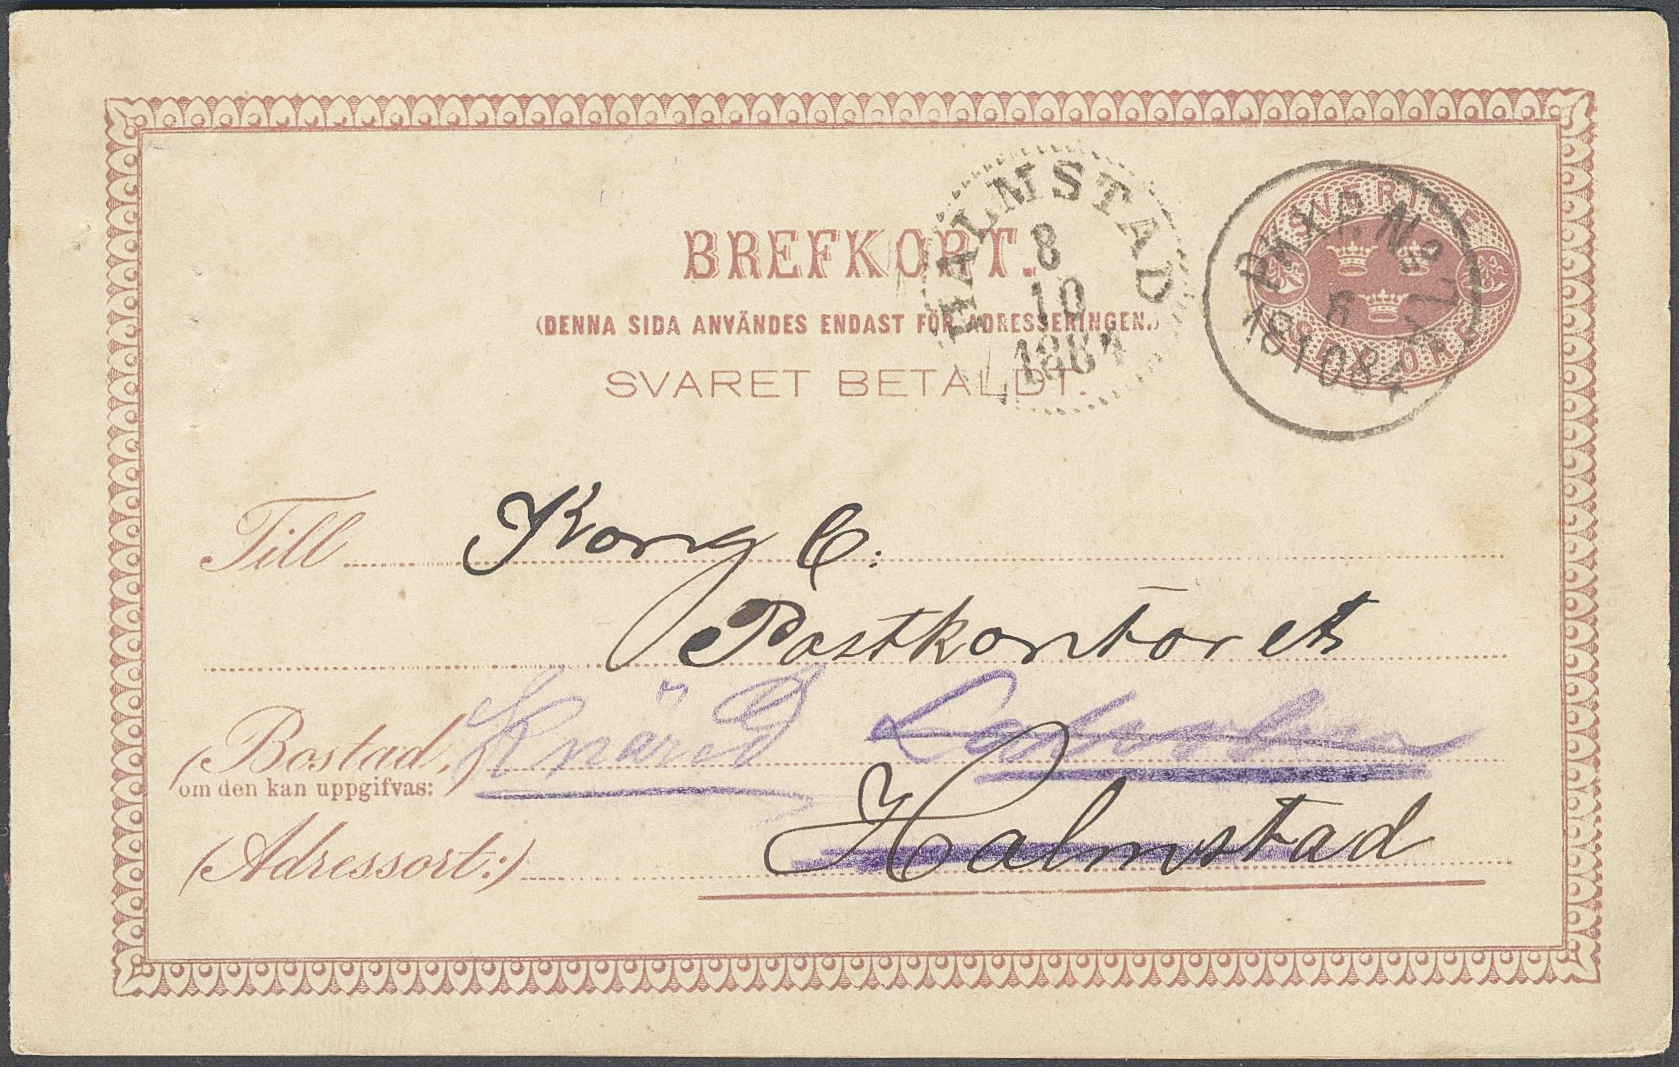 SVERIGE
BREFKORT.
(DENNA SIDA ANVÄNDES ENDAST FÖR ADRESSERINGEN.)
SVARET BETALDT.
HALMSTAD
8
10
1884
PKXP. Nº 2
6
18 10 84
Till Kongl.
Postkontoret
Knäred Laholm
(Bostad,)
om den kan uppgifvas:
Halmstad
(Adressort:)